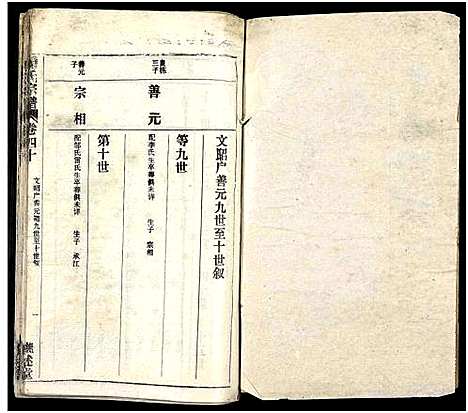 文昭户善元九世至十世叙
等九世
善元
三子
配李氏生卒葬俱未详 生子 宗相
第十世
宗相
善元
子
配邹氏雷氏生卒葬俱未详 生子 承江
氏宗谱
卷四十
文昭户善元等九世至十世叙
一